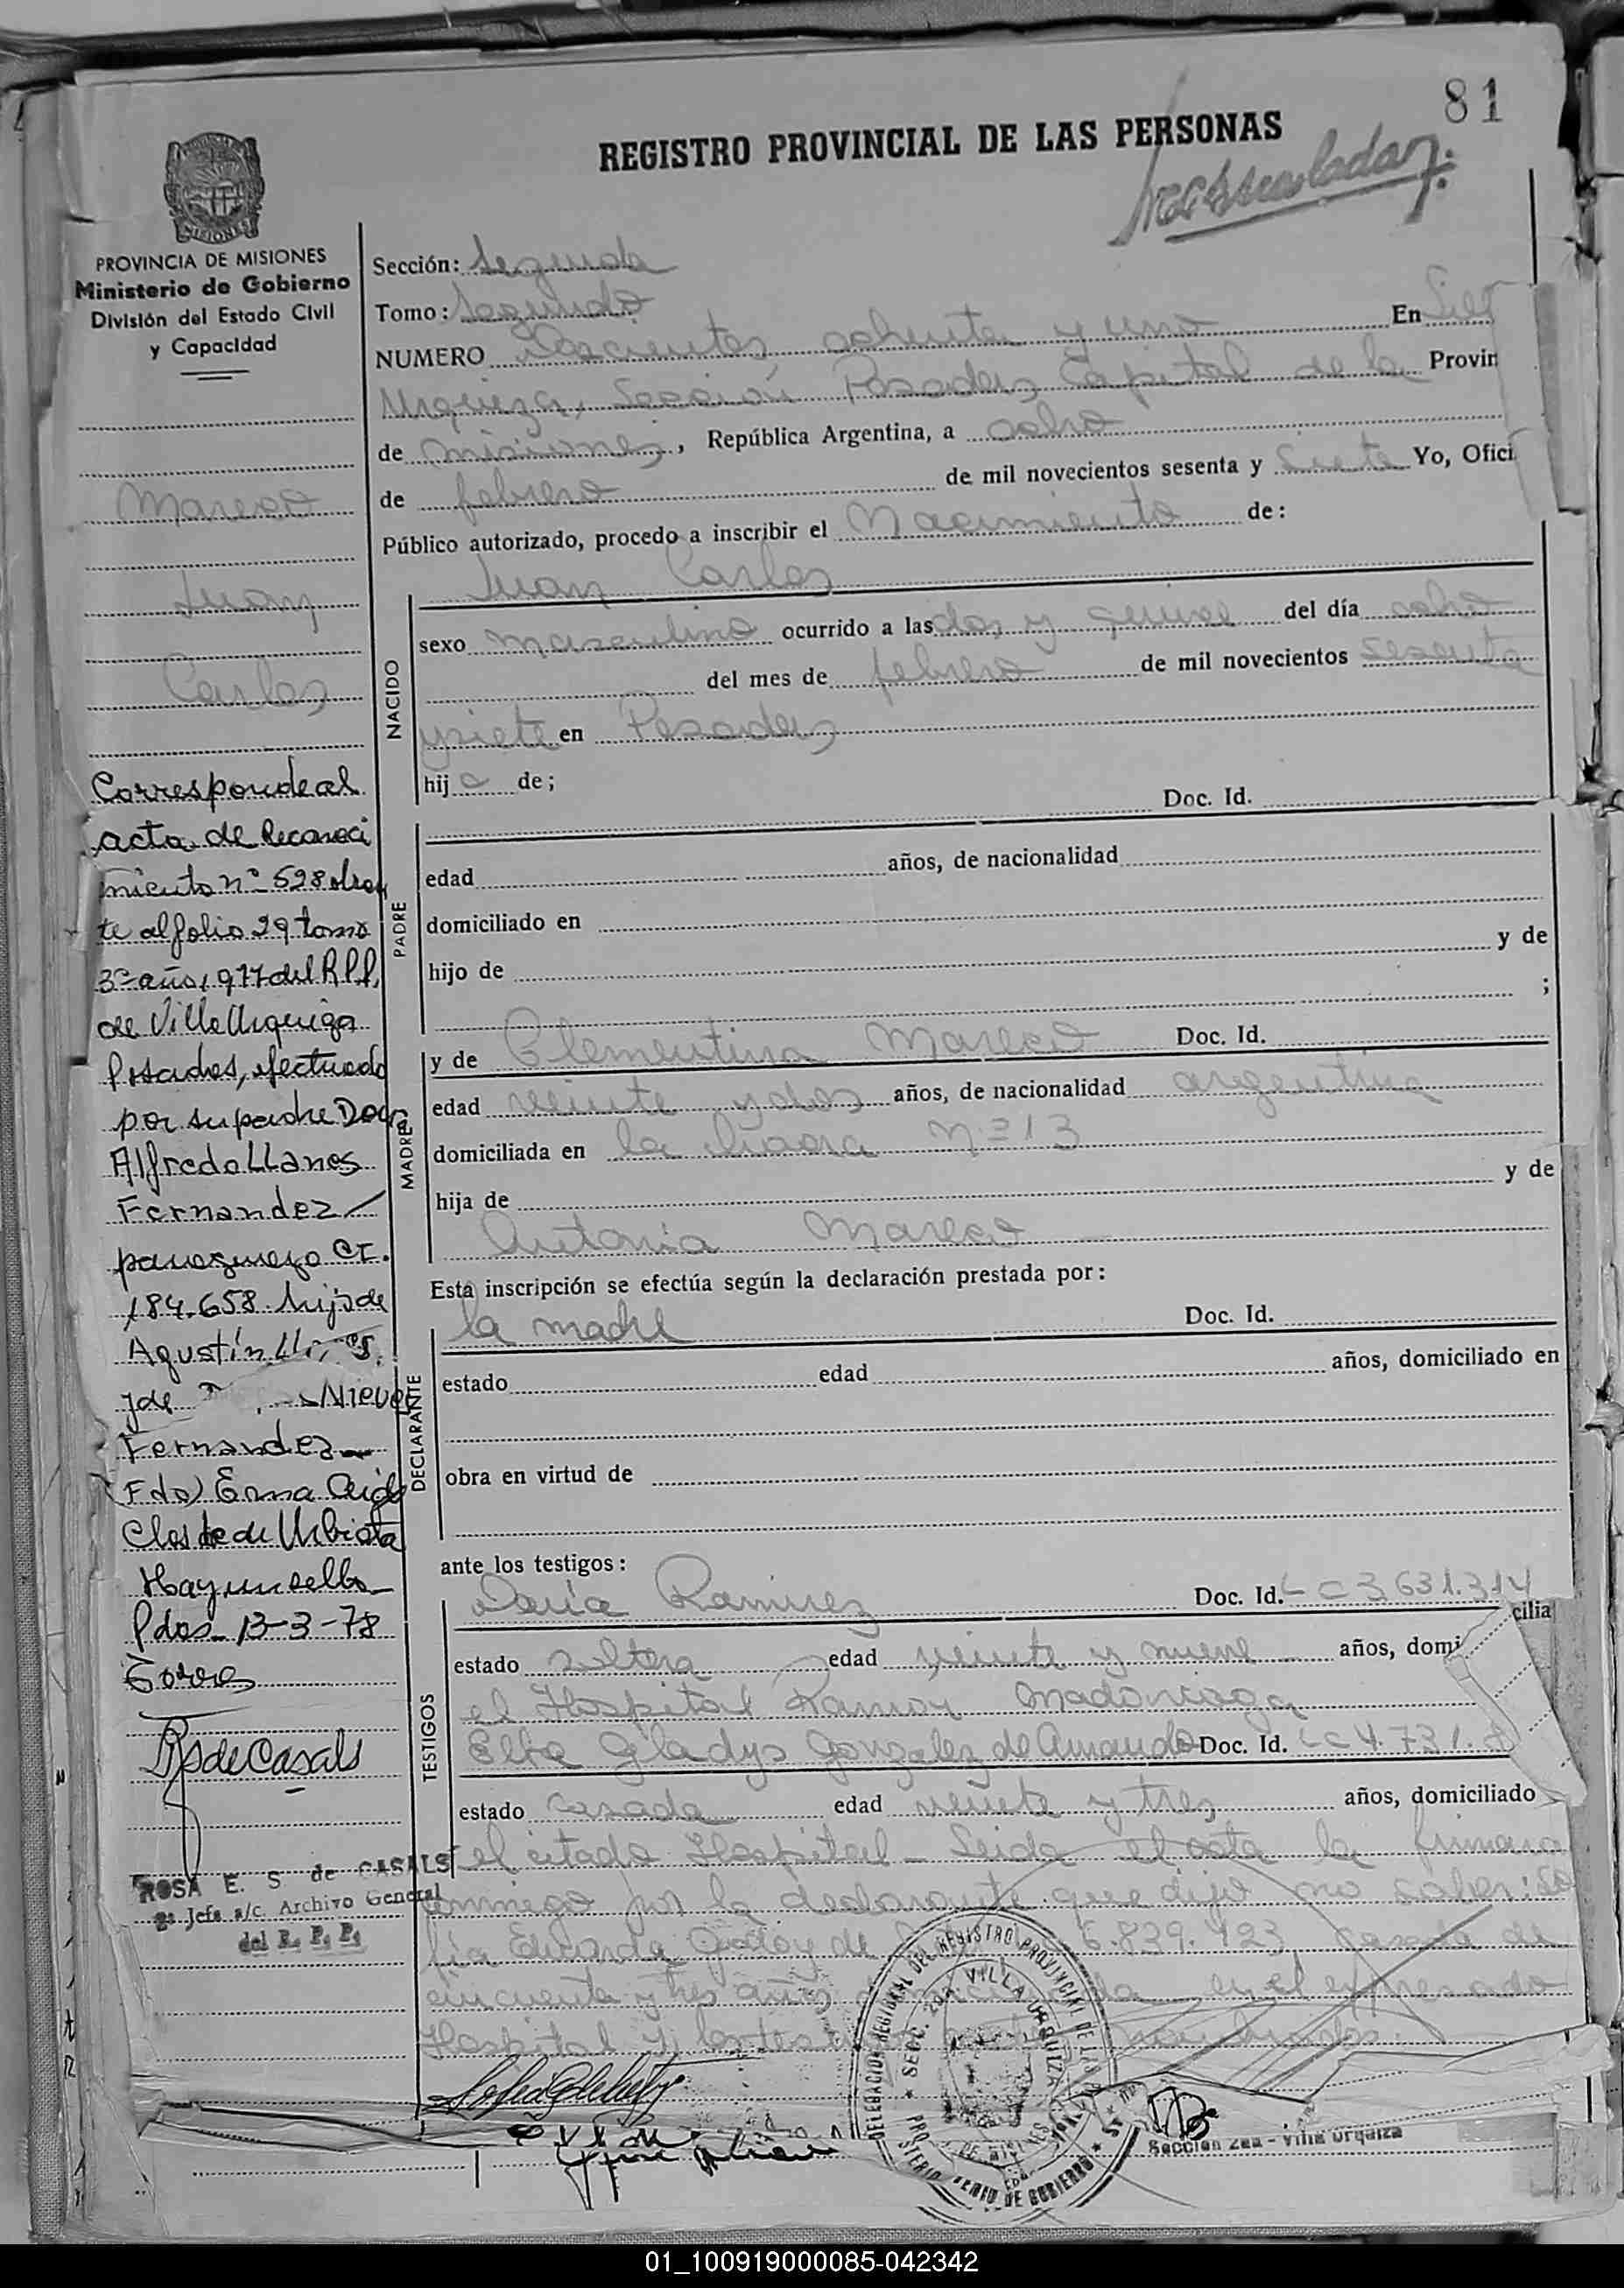 81
REGISTRO PROVINCIAL DE LAS PERSONAS
MISIONES
PROVINCIA DE MISIONES
Ministerio de Gobierno
División del Estado Civil
y Capacidad
Mareco
Juan
Carlos
Corresponde al
acta de Reconoci
miento nº 598 obran
te al folio 29 tomo
3º año 1977 del R.P.P.
de Villa Urquiza
Posadas, efectuado
por su padre Don
Alfredo LLanes
Fernandez
paraguayo CI.
184.658 hijo de
Agustín
y de Nieves
Fernandez
Fdo) Erma
de Urbieta
Hay un sello
Pdas 13-3-78
RSdeCasals
ROSA E. S de CASALS
2ª Jefa a/c. Archivo General
del R. P. P.
Sección: Segunda
Tomo: Segundo
NUMERO Doscientos ochenta y uno En
Urquiza, Sección Posadas Capital de la Provin
de Misiones, República Argentina, a ocho
de febrero de mil novecientos sesenta y siete Yo, Ofici
Público autorizado, procedo a inscribir el Nacimiento de:
Juan Carlos
NACIDO
sexo masculino ocurrido a las dos y quince del día ocho
del mes de febrero de mil novecientos sesenta
y siete en Posadas
hijo de;
Doc. Id.
PADRE
edad años, de nacionalidad
domiciliado en
hijo de y de
;
MADRE
y de Clementina Mareco Doc. Id.
edad veinte y dos años, de nacionalidad argentina
domiciliada en la Nº 13
hija de y de
Antonia Mareco
Esta inscripción se efectúa según la declaración prestada por:
la madre Doc. Id.
DECLARANTE
estado edad años, domiciliado en
obra en virtud de
ante los testigos:
TESTIGOS
Ramirez Doc. Id. LC 3.631.314
estado soltera edad veinte y nueve años, domi cilia
el Hospital Ramon Madariaga
Elba Gladys Gonzalez de Doc. Id. LC 4.731.
estado casada edad veinte y tres años, domiciliado
el citado Hospital - Leida el acta la firmaron
conmigo por la declarante que dijo no saber
Eduarda de 6.839.423, casada de
cincuenta y tres años domiciliada en el expresado
Hospital y los testigos nombrados.
DELEGACION REGIONAL DEL REGISTRO PROVINCIAL DE LAS
SECC. 2da VILLA URQUIZA
DE GOBIERNO
Sección 2da - Villa Urquiza
01_100919000085-042342